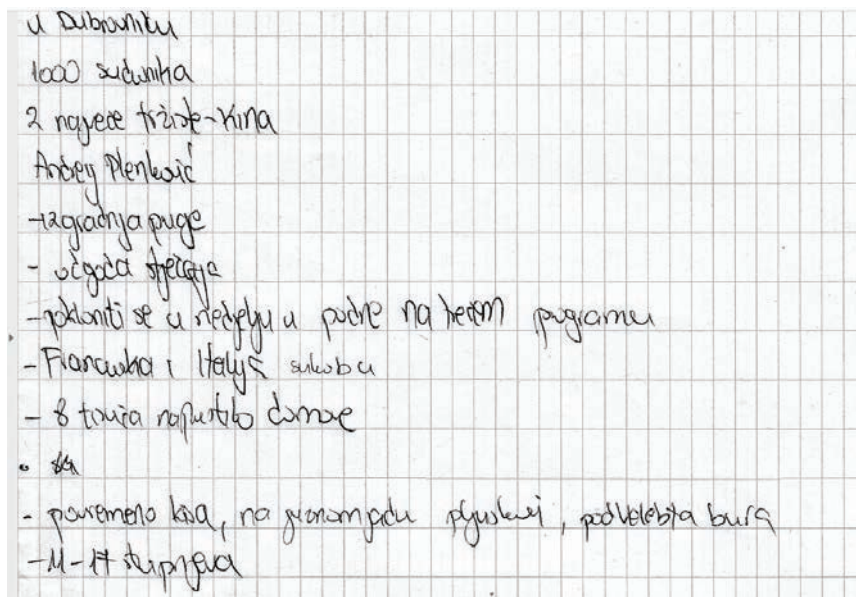 u Dubrovniku
1000 sudionika
2 najveće tržište-Kina
Andrej Plenković
-izgradnja pruge
- odgođa stečaja
-pokloniti se u nedjelju u podne na trećem programu
-Francuska i Italija sukobu
- 8 tisuća napustilo domove
- povremeno kiša, na jugozapadu pljuskovi, podvelebita bura
-11-17 stupnjeva